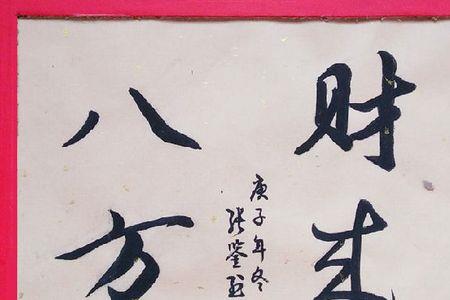 财来
八方
庚子年冬
张鉴